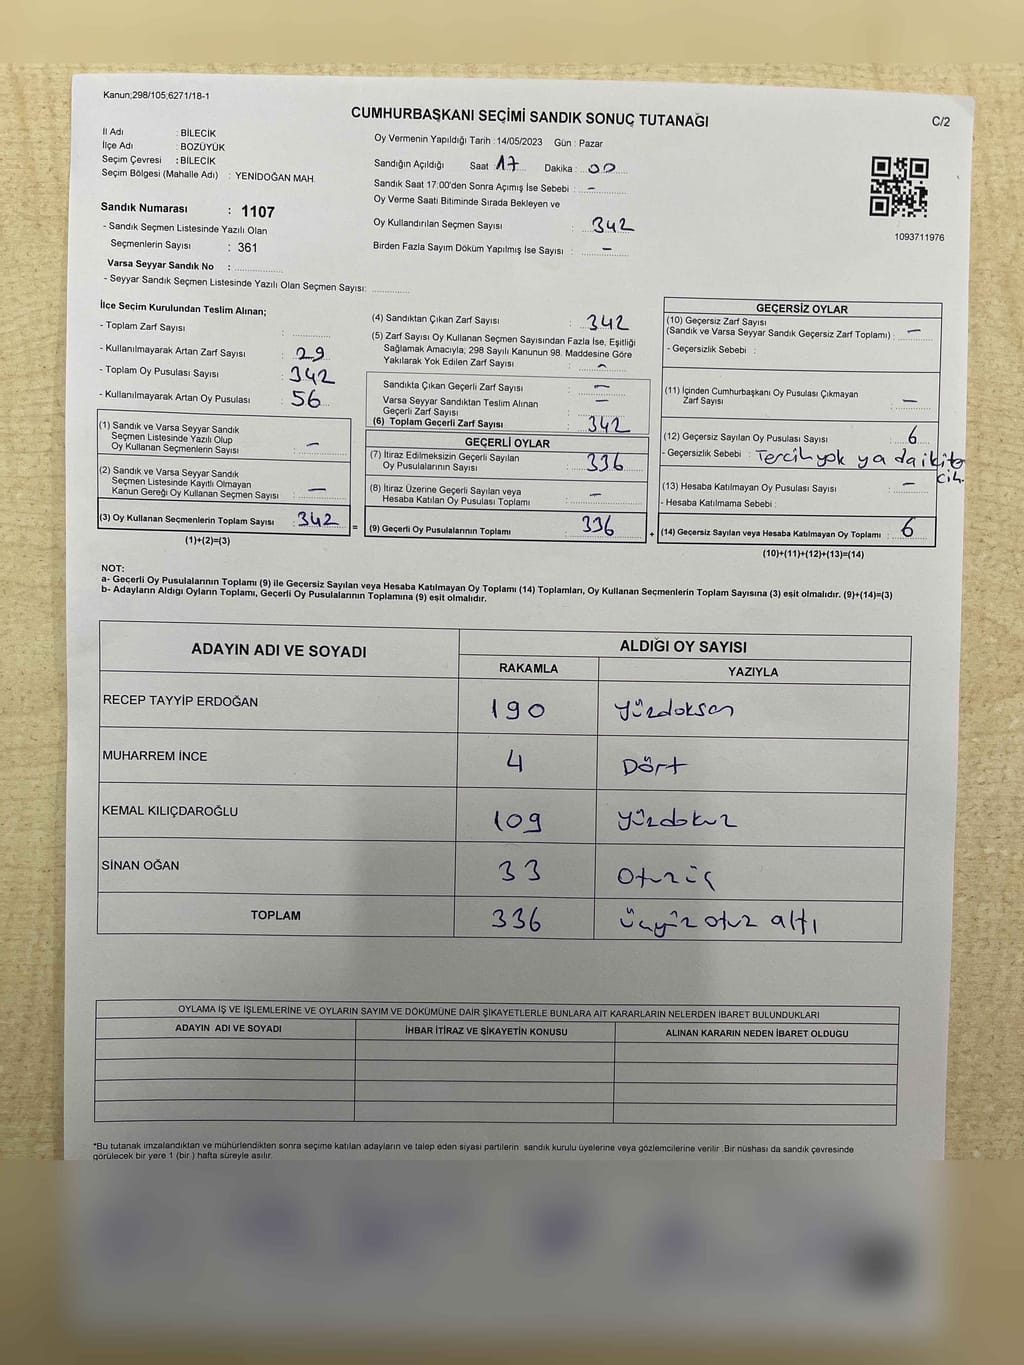 Kanun;298/105;6271/18-1
CUMHURBAŞKANI SEÇİMİ SANDIK SONUÇ TUTANAĞI
C/2
İl Adı : BİLECİK
İlçe Adı : BOZÜYÜK
Seçim Çevresi : BİLECİK
Seçim Bölgesi (Mahalle Adı) : YENİDOĞAN MAH.
Sandık Numarası : 1107
- Sandık Seçmen Listesinde Yazılı Olan
Seçmenlerin Sayısı : 361
Varsa Seyyar Sandık No :
- Seyyar Sandık Seçmen Listesinde Yazılı Olan Seçmen Sayısı:
Oy Vermenin Yapıldığı Tarih : 14/05/2023 Gün : Pazar
Sandığın Açıldığı Saat : 17 Dakika : 00
Sandık Saat 17:00'den Sonra Açımış İse Sebebi : -
Oy Verme Saati Bitiminde Sırada Bekleyen ve
Oy Kullandırılan Seçmen Sayısı : 342
Birden Fazla Sayım Döküm Yapılmış İse Sayısı : -
1093711976
İlçe Seçim Kurulundan Teslim Alınan;
- Toplam Zarf Sayısı :
- Kullanılmayarak Artan Zarf Sayısı : 29
- Toplam Oy Pusulası Sayısı : 342
- Kullanılmayarak Artan Oy Pusulası : 56
(1) Sandık ve Varsa Seyyar Sandık
Seçmen Listesinde Yazılı Olup
Oy Kullanan Seçmenlerin Sayısı : -
(2) Sandık ve Varsa Seyyar Sandık
Seçmen Listesinde Kayıtlı Olmayan
Kanun Gereği Oy Kullanan Seçmen Sayısı : -
(3) Oy Kullanan Seçmenlerin Toplam Sayısı : 342
(1)+(2)=(3)
(4) Sandıktan Çıkan Zarf Sayısı : 342
(5) Zarf Sayısı Oy Kullanan Seçmen Sayısından Fazla İse, Eşitliği
Sağlamak Amacıyla; 298 Sayılı Kanunun 98. Maddesine Göre
Yakılarak Yok Edilen Zarf Sayısı : -
Sandıkta Çıkan Geçerli Zarf Sayısı : -
Varsa Seyyar Sandıktan Teslim Alınan
Geçerli Zarf Sayısı : -
(6) Toplam Geçerli Zarf Sayısı : 342
GEÇERLİ OYLAR
(7) İtiraz Edilmeksizin Geçerli Sayılan
Oy Pusulalarının Sayısı : 336
(8) İtiraz Üzerine Geçerli Sayılan veya
Hesaba Katılan Oy Pusulası Toplamı : -
= (9) Geçerli Oy Pusulalarının Toplamı : 336
GEÇERSİZ OYLAR
(10) Geçersiz Zarf Sayısı
(Sandık ve Varsa Seyyar Sandık Geçersiz Zarf Toplamı) : -
- Geçersizlik Sebebi :
(11) İçinden Cumhurbaşkanı Oy Pusulası Çıkmayan
Zarf Sayısı : -
(12) Geçersiz Sayılan Oy Pusulası Sayısı : 6
- Geçersizlik Sebebi : Tercih yok ya da iki tercih.
(13) Hesaba Katılmayan Oy Pusulası Sayısı : -
- Hesaba Katılmama Sebebi :
+ (14) Geçersiz Sayılan veya Hesaba Katılmayan Oy Toplamı : 6
(10)+(11)+(12)+(13)=(14)
NOT:
a- Geçerli Oy Pusulalarının Toplamı (9) ile Geçersiz Sayılan veya Hesaba Katılmayan Oy Toplamı (14) Toplamları, Oy Kullanan Seçmenlerin Toplam Sayısına (3) eşit olmalıdır. (9)+(14)=(3)
b- Adayların Aldığı Oyların Toplamı, Geçerli Oy Pusulalarının Toplamına (9) eşit olmalıdır.
ADAYIN ADI VE SOYADI
ALDIĞI OY SAYISI
RAKAMLA YAZIYLA
RECEP TAYYİP ERDOĞAN 190 Yüzdoksan
MUHARREM İNCE 4 Dört
KEMAL KILIÇDAROĞLU 109 Yüzdokuz
SİNAN OĞAN 33 Otuzüç
TOPLAM 336 Üçyüz otuz altı
OYLAMA İŞ VE İŞLEMLERİNE VE OYLARIN SAYIM VE DÖKÜMÜNE DAİR ŞİKAYETLERLE BUNLARA AİT KARARLARIN NELERDEN İBARET BULUNDUKLARI
ADAYIN ADI VE SOYADI İHBAR İTİRAZ VE ŞİKAYETİN KONUSU ALINAN KARARIN NEDEN İBARET OLDUĞU
*Bu tutanak imzalandıktan ve mühürlendikten sonra seçime katılan adayların ve talep eden siyasi partilerin sandık kurulu üyelerine veya gözlemcilerine verilir .Bir nüshası da sandık çevresinde
görülecek bir yere 1 (bir ) hafta süreyle asılır.